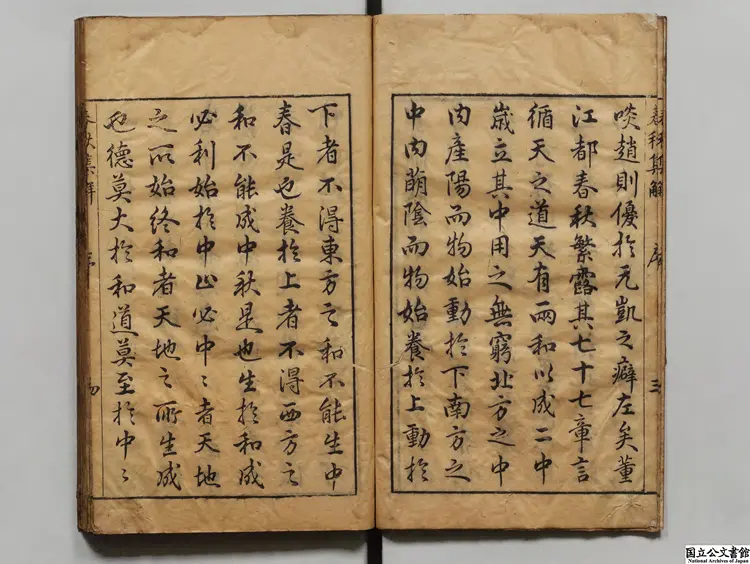 春秋集解 序 三
啖趙則優於元凱之癖左矣董
江都春秋繁露其七十七章言
循天之道天有兩和以成二中
歲立其中用之無窮北方之中
內產陽而物始動於下南方之
中內萌陰而物始養於上動於
下者不得東方之和不能生中
春是也養於上者不得西方之
和不能成中秋是也生於和成
必利始於中止必中〻者天地
之所始終和者天地之所生成
也德莫大於和道莫至於中〻
春秋集解 序
国立公文書館
National Archives of Japan